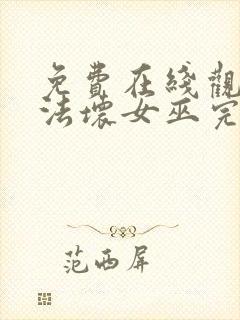 免費在綫觀
法壞女巫完
范西屏